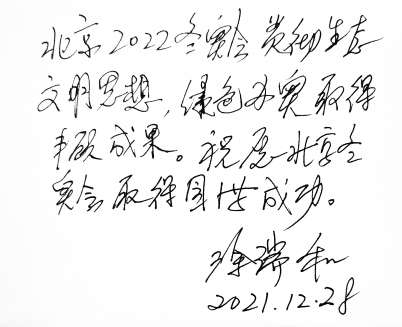 北京2022冬奥会贯彻生态
文明思想，绿色办奥取得
丰硕成果。祝愿北京冬
奥会取得圆满成功。
徐瑞和
2021.12.28